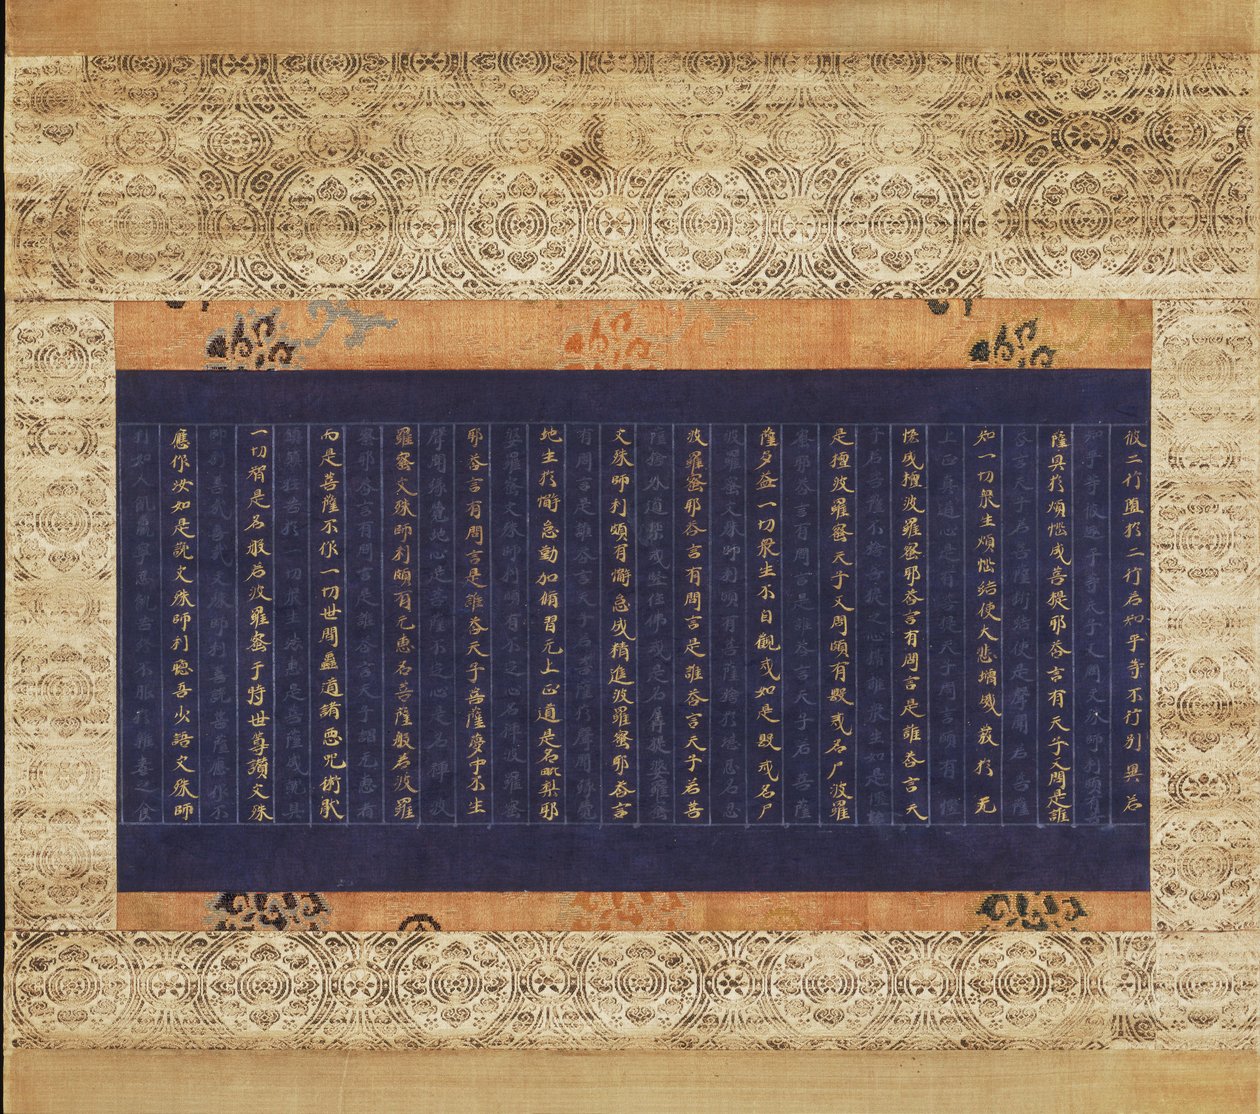 彼二行遠於二行若如平等不行別異若
如平等彼逐平等天子又問文殊師利頗有菩
薩具於煩惱成菩提耶答言有天子又問是誰
答言天子若菩薩斷煩惱便是聲聞若菩薩
知一切眾生煩惱結使大悲增熾發於无
上正真道心是有菩提天子問言頗有慳
慳成檀波羅蜜耶答言有問言是誰答言天
子若菩薩不捨菩提之心攝離眾生如是慳
是檀波羅蜜天子又問頗有毀戒名尸波羅
蜜耶答言有問言是誰答言天子若菩薩
薩多益一切眾生不自觀戒如是毀戒名尸
波羅蜜文殊師利頗有菩薩捨於堪忍名忍
波羅蜜耶答言有問言是誰答言天子若菩
薩捨外道禁戒堅住佛戒是名羼提婆羅蜜
文殊師利頗有懈怠成精進波羅蜜耶答言
有問言是誰答言天子若菩薩於聲聞緣覺
地生於懈怠勤加脩習无上正道是名毗梨耶
婆羅蜜文殊師利頗有忘之心名禪波羅蜜
耶答言有問言是誰答天子菩薩夢中不生
聲聞緣覺地心是菩薩忘心是名禪波
羅蜜文殊師利頗有无惠名菩薩般若波羅
蜜耶答言有問言是誰答言天子謂无惠者
而是菩薩不作一切世間蠱道諸惡咒術歌
於一切眾生惠是菩薩成就具
一切智是名般若波羅蜜于時世尊讚文殊
師利善哉善哉文殊師利善說菩薩應作不
應作汝如是說文殊師利聽吾少語文殊師
利如人飢羸寧忍飢苦終不服於雜毒之食